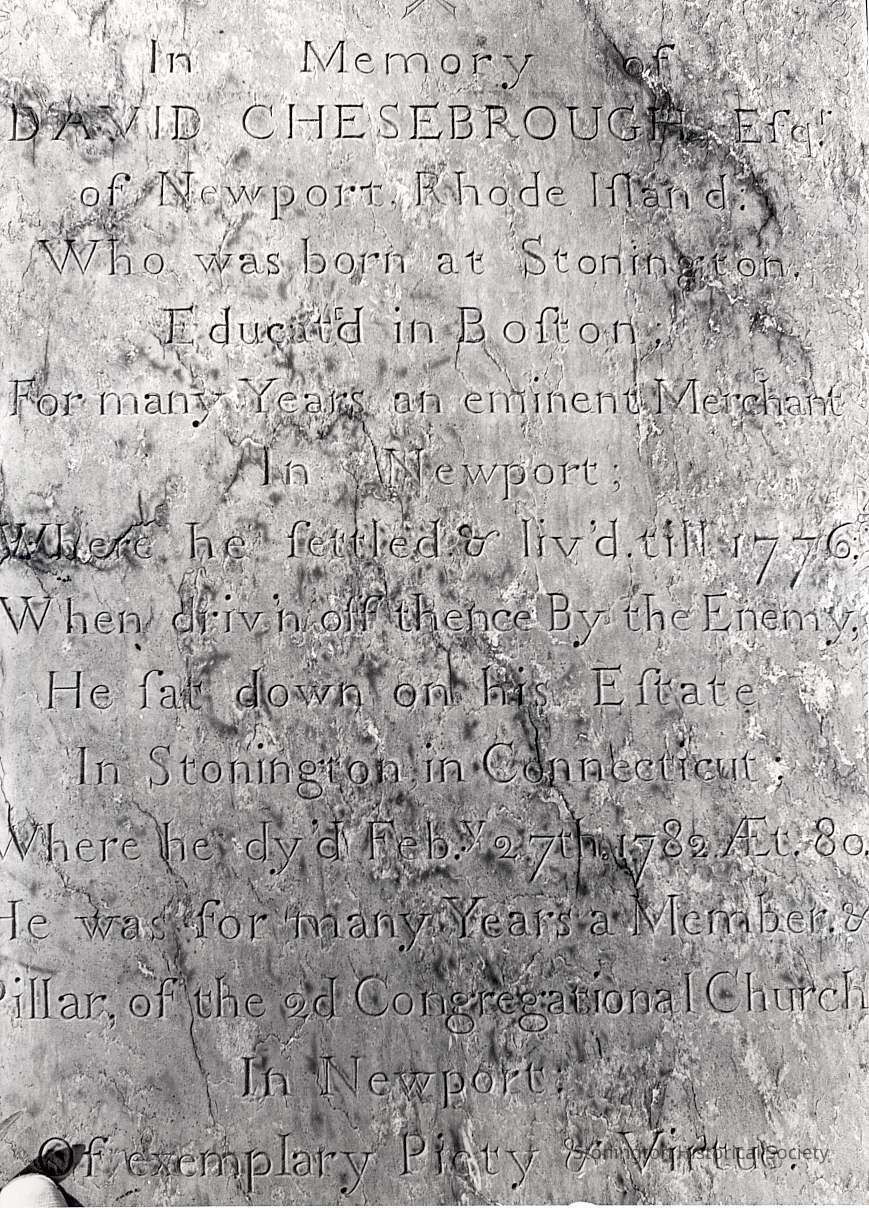 In Memory of
DAVID CHESEBROUGH Eſqr.
of Newport, Rhode Iſland;
Who was born at Stonington,
Educat'd in Boſton;
For many Years an eminent Merchant
In Newport;
Where he ſettled & liv'd till 1776.
When driv'n off thence By the Enemy,
He ſat down on his Eſtate
In Stonington, in Connecticut;
Where he dy'd Feb.y 27th. 1782 Æt. 80.
He was for many Years a Member. &
Pillar, of the 2d Congregational Church
In Newport:
Of exemplary Piety & Virtue.
Stonington Historical Society